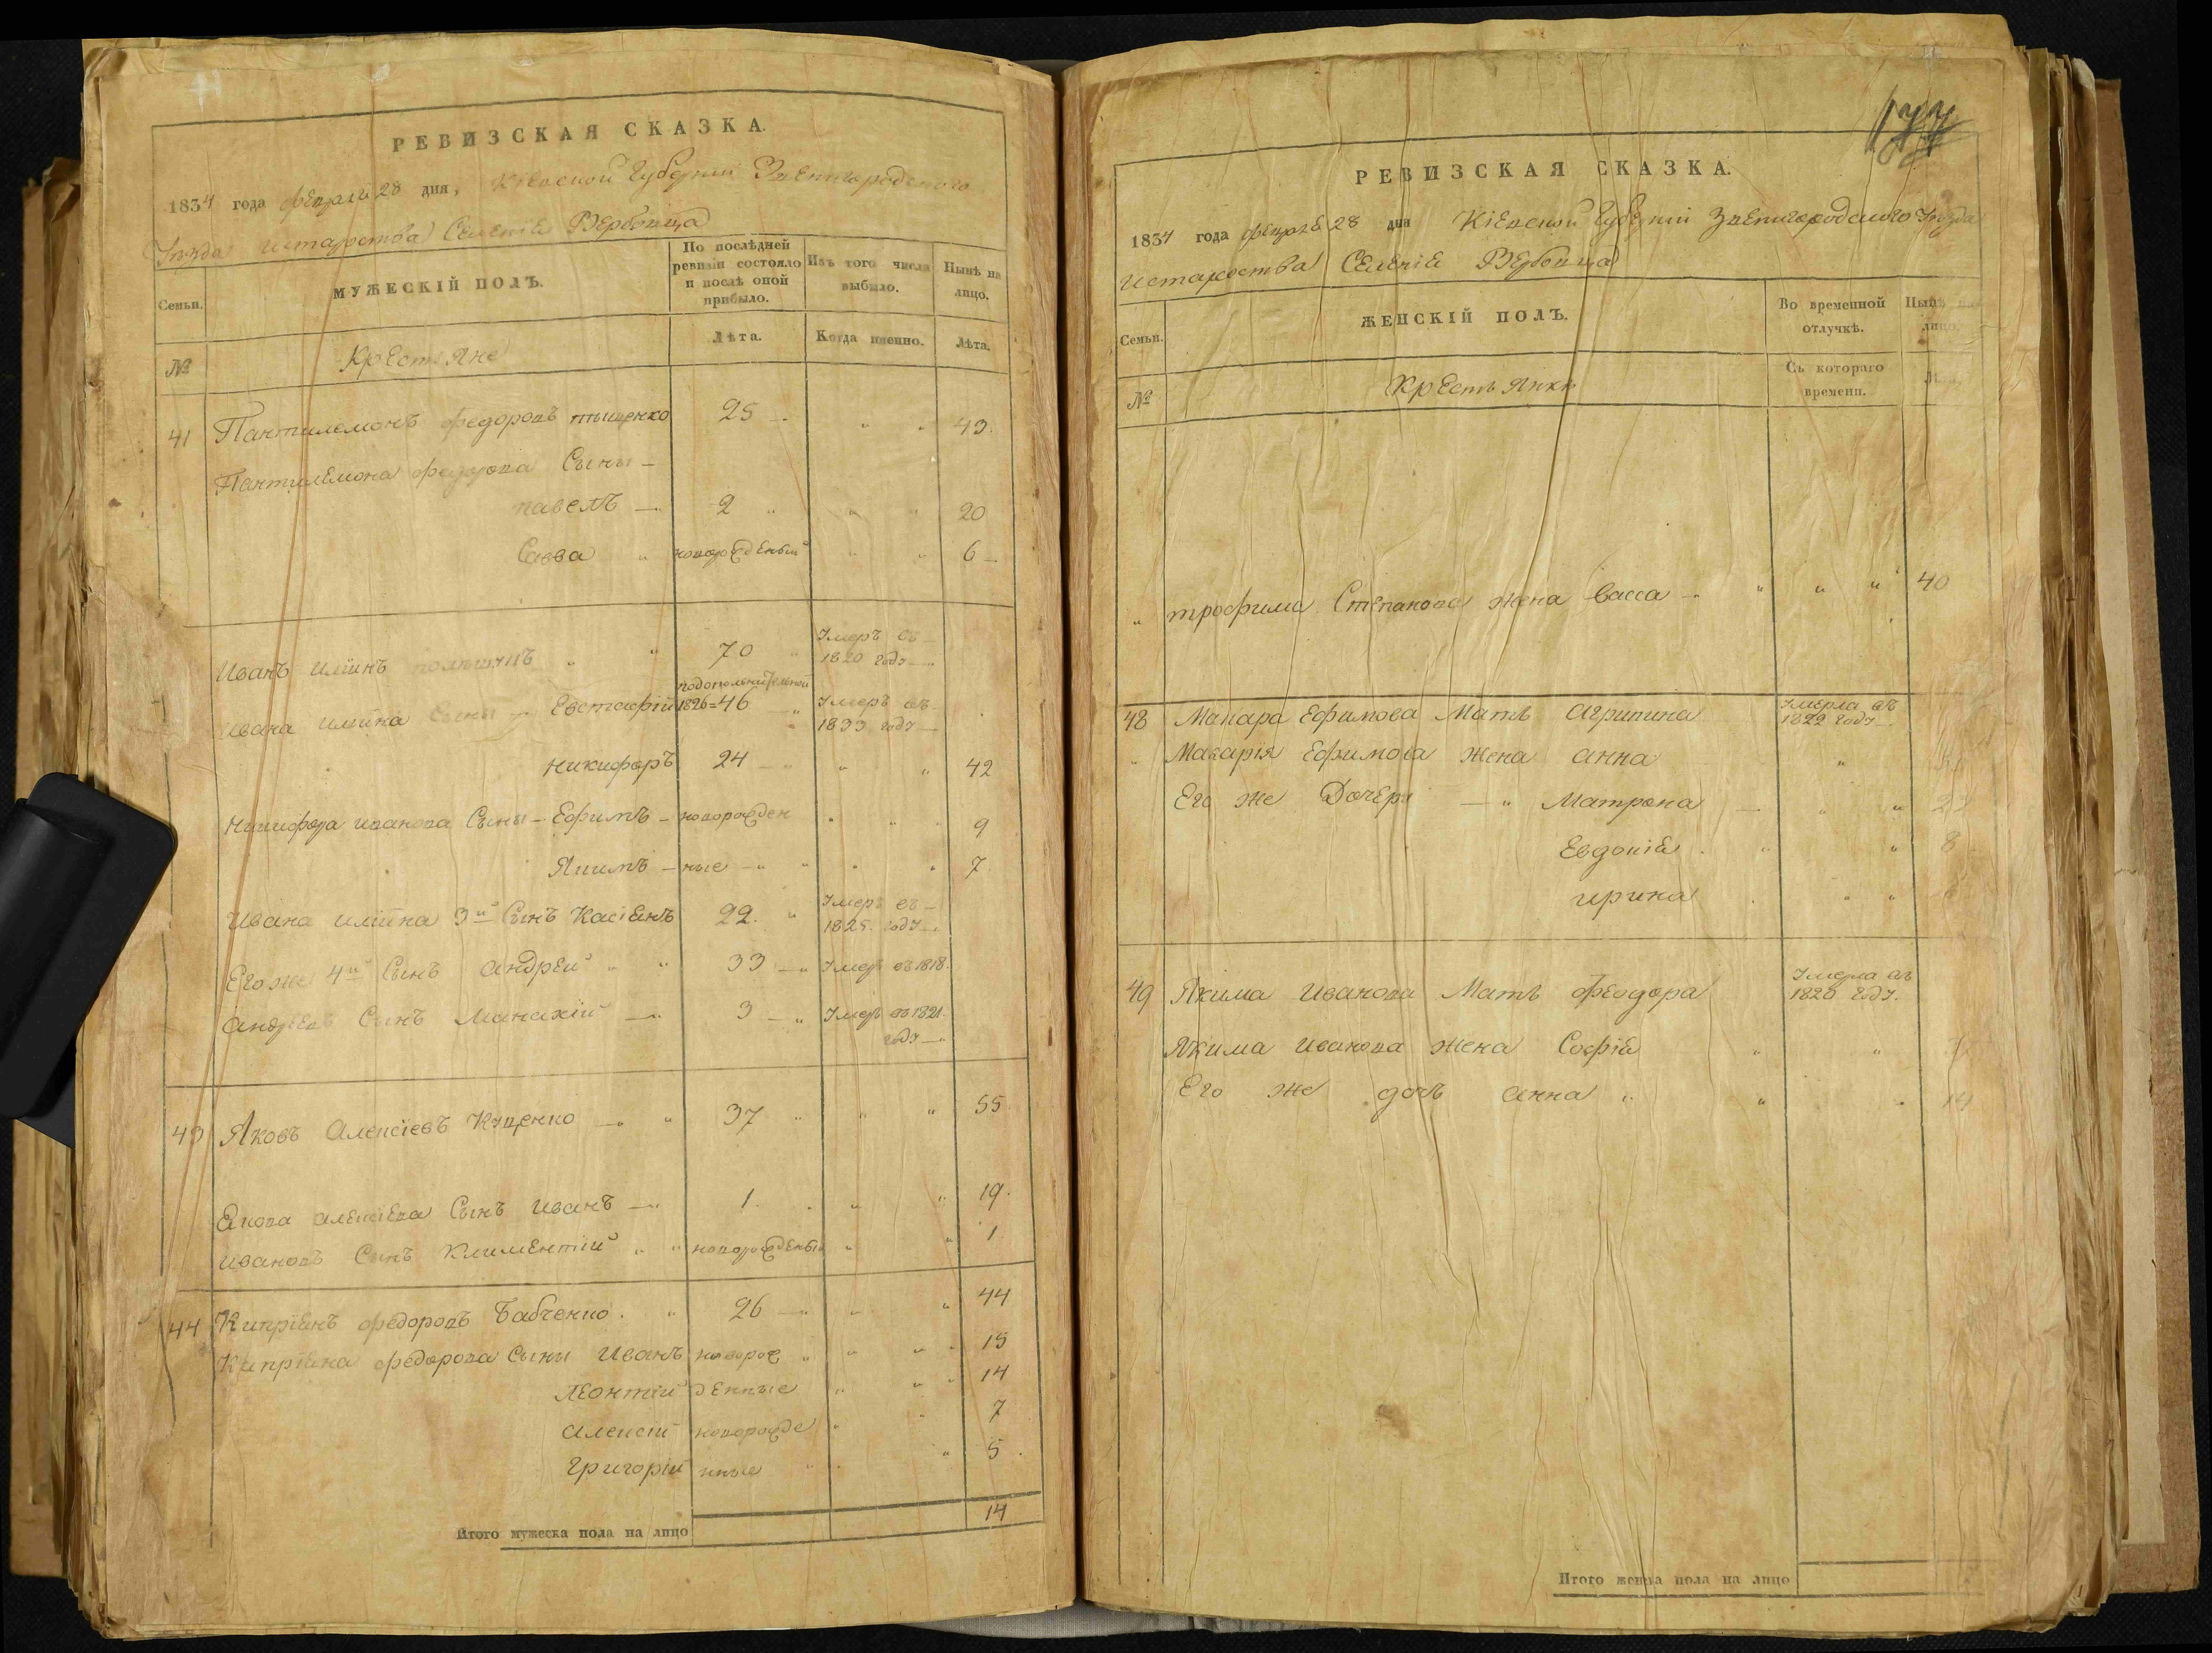 РЕВИЗСКАЯ СКАЗКА.
1834 года февраля 28 дня, Кіевской Губерніи Звенигородского
Уезда Истароства Селеніе Вербовца
Семьи. МУЖЕСКІЙ ПОЛЪ. По послѣдней ревизіи состояло и послѣ оной прибыло. Изъ того числа выбыло. Нынѣ на лицо.
№ Крестьяне Лѣта. Когда именно. Лѣта.
41 Пантилемонъ федоровъ тыщенко 25 " " 43.
Пантилемона федорова Сыны
павелъ 2 " " 20
Савва " новорожденый " " 6
Иванъ Илiинъ " " 70 Умеръ въ 1820 году
Ивана Илiина Сыны Евстафiй подополнительной 1826=46 Умеръ въ 1833 году
Никифоръ 24 " " 42
Никифора иванова Сыны Ефимъ новорожден " " 9
Якимъ ные " " 7
Ивана илiина 3й Сынъ Касiянъ 22. " Умеръ въ 1825. году
Его же 4й Сынъ Андрей " " 33 Умеръ въ 1818.
Андреевъ Сынъ Манахiй 3 Умеръ въ 1821. году
43 Яковъ Алексiевъ Куценко 37 " " 55.
Якова алексiева Сынъ Иванъ 1. " " 19.
Ивановъ Сынъ Климентiй " " новорожденый " " 1
44 Кипрiянъ федоровъ Бабченко. " 26 " " 44
Кипрiяна федорова Сыны Иванъ новорож " " 15
Леонтiй денные " " 14
Алексiй новорожде " " 7
Григорiй нные " " 5.
Итого мужеска пола на лицо 14
РЕВИЗСКАЯ СКАЗКА.
1834 года февраля 28 дня Кiевской Губернiи Звенигородского Уезда
Истароства Селенiе Вербовца
Семьи. ЖЕНСКІЙ ПОЛЪ. Во временной отлучкѣ. Нынѣ на лицо.
№ Крестьянки Съ котораго времени.
" трофима Степанова жена васса " " " 40
48 Макара Ефимова Мать Агрипина Умерла въ 1822 году
" Макарiя Ефимова жена анна "
Его же Дочери " Матрона " "
Евдокiя " " 8
ирина " "
49 Якима Иванова Мать феодора Умерла въ 1820 году.
Якима Иванова жена Софiя " "
Его же дочь анна " " 14
Итого женска пола на лицо